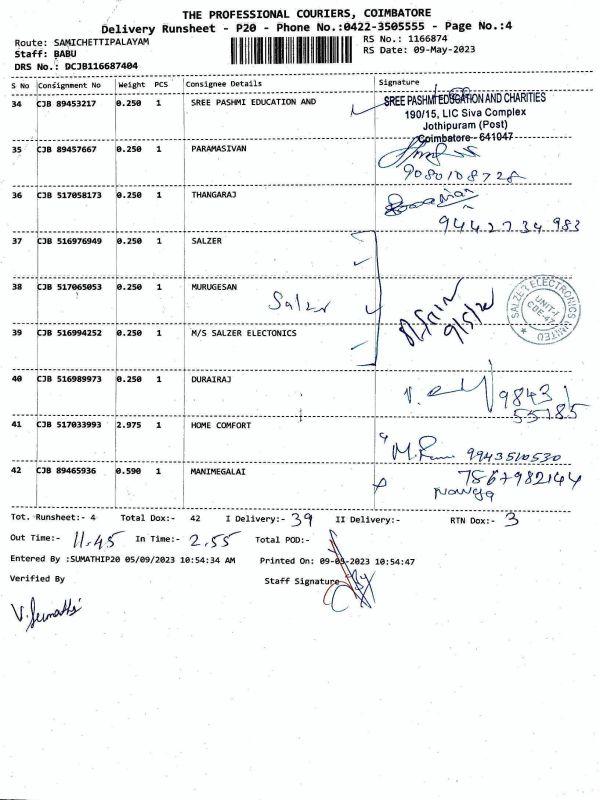 THE PROFESSIONAL COURIERS, COIMBATORE
Delivery Runsheet - P20 - Phone No.:0422-3505555 - Page No.:4
Route: SAMICHETTIPALAYAM
RS No.: 1166874
Staff: BABU
RS Date: 09-May-2023
DRS No.: DCJB116687404
S No Consignment No Weight PCS Consignee Details Signature
34 CJB 89453217 0.250 1 SREE PASHMI EDUCATION AND
SREE PASHMI EDUCATION AND CHARITIES
190/15, LIC Siva Complex
Jothipuram (Post)
Coimbatore - 641047
35 CJB 89457667 0.250 1 PARAMASIVAN
9080108728
36 CJB 517058173 0.250 1 THANGARAJ
94427 34 983
37 CJB 516976949 0.250 1 SALZER
38 CJB 517065053 0.250 1 MURUGESAN
Salzer
9/5/2
SALZER ELECTRONICS LIMITED
UNIT-I
CBE-47
39 CJB 516994252 0.250 1 M/S SALZER ELECTONICS
40 CJB 516989973 0.250 1 DURAIRAJ
9843
55185
41 CJB 517033993 2.975 1 HOME COMFORT
9943510530
42 CJB 89465936 0.590 1 MANIMEGALAI
7567982144
Tot. Runsheet:- 4 Total Dox:- 42 I Delivery:- 39 II Delivery:- RTN Dox:- 3
Out Time:- 11.45 In Time:- 2.55 Total POD:-
Entered By :SUMATHIP20 05/09/2023 10:54:34 AM Printed On: 09-05-2023 10:54:47
Verified By Staff Signature
V. Sumathi